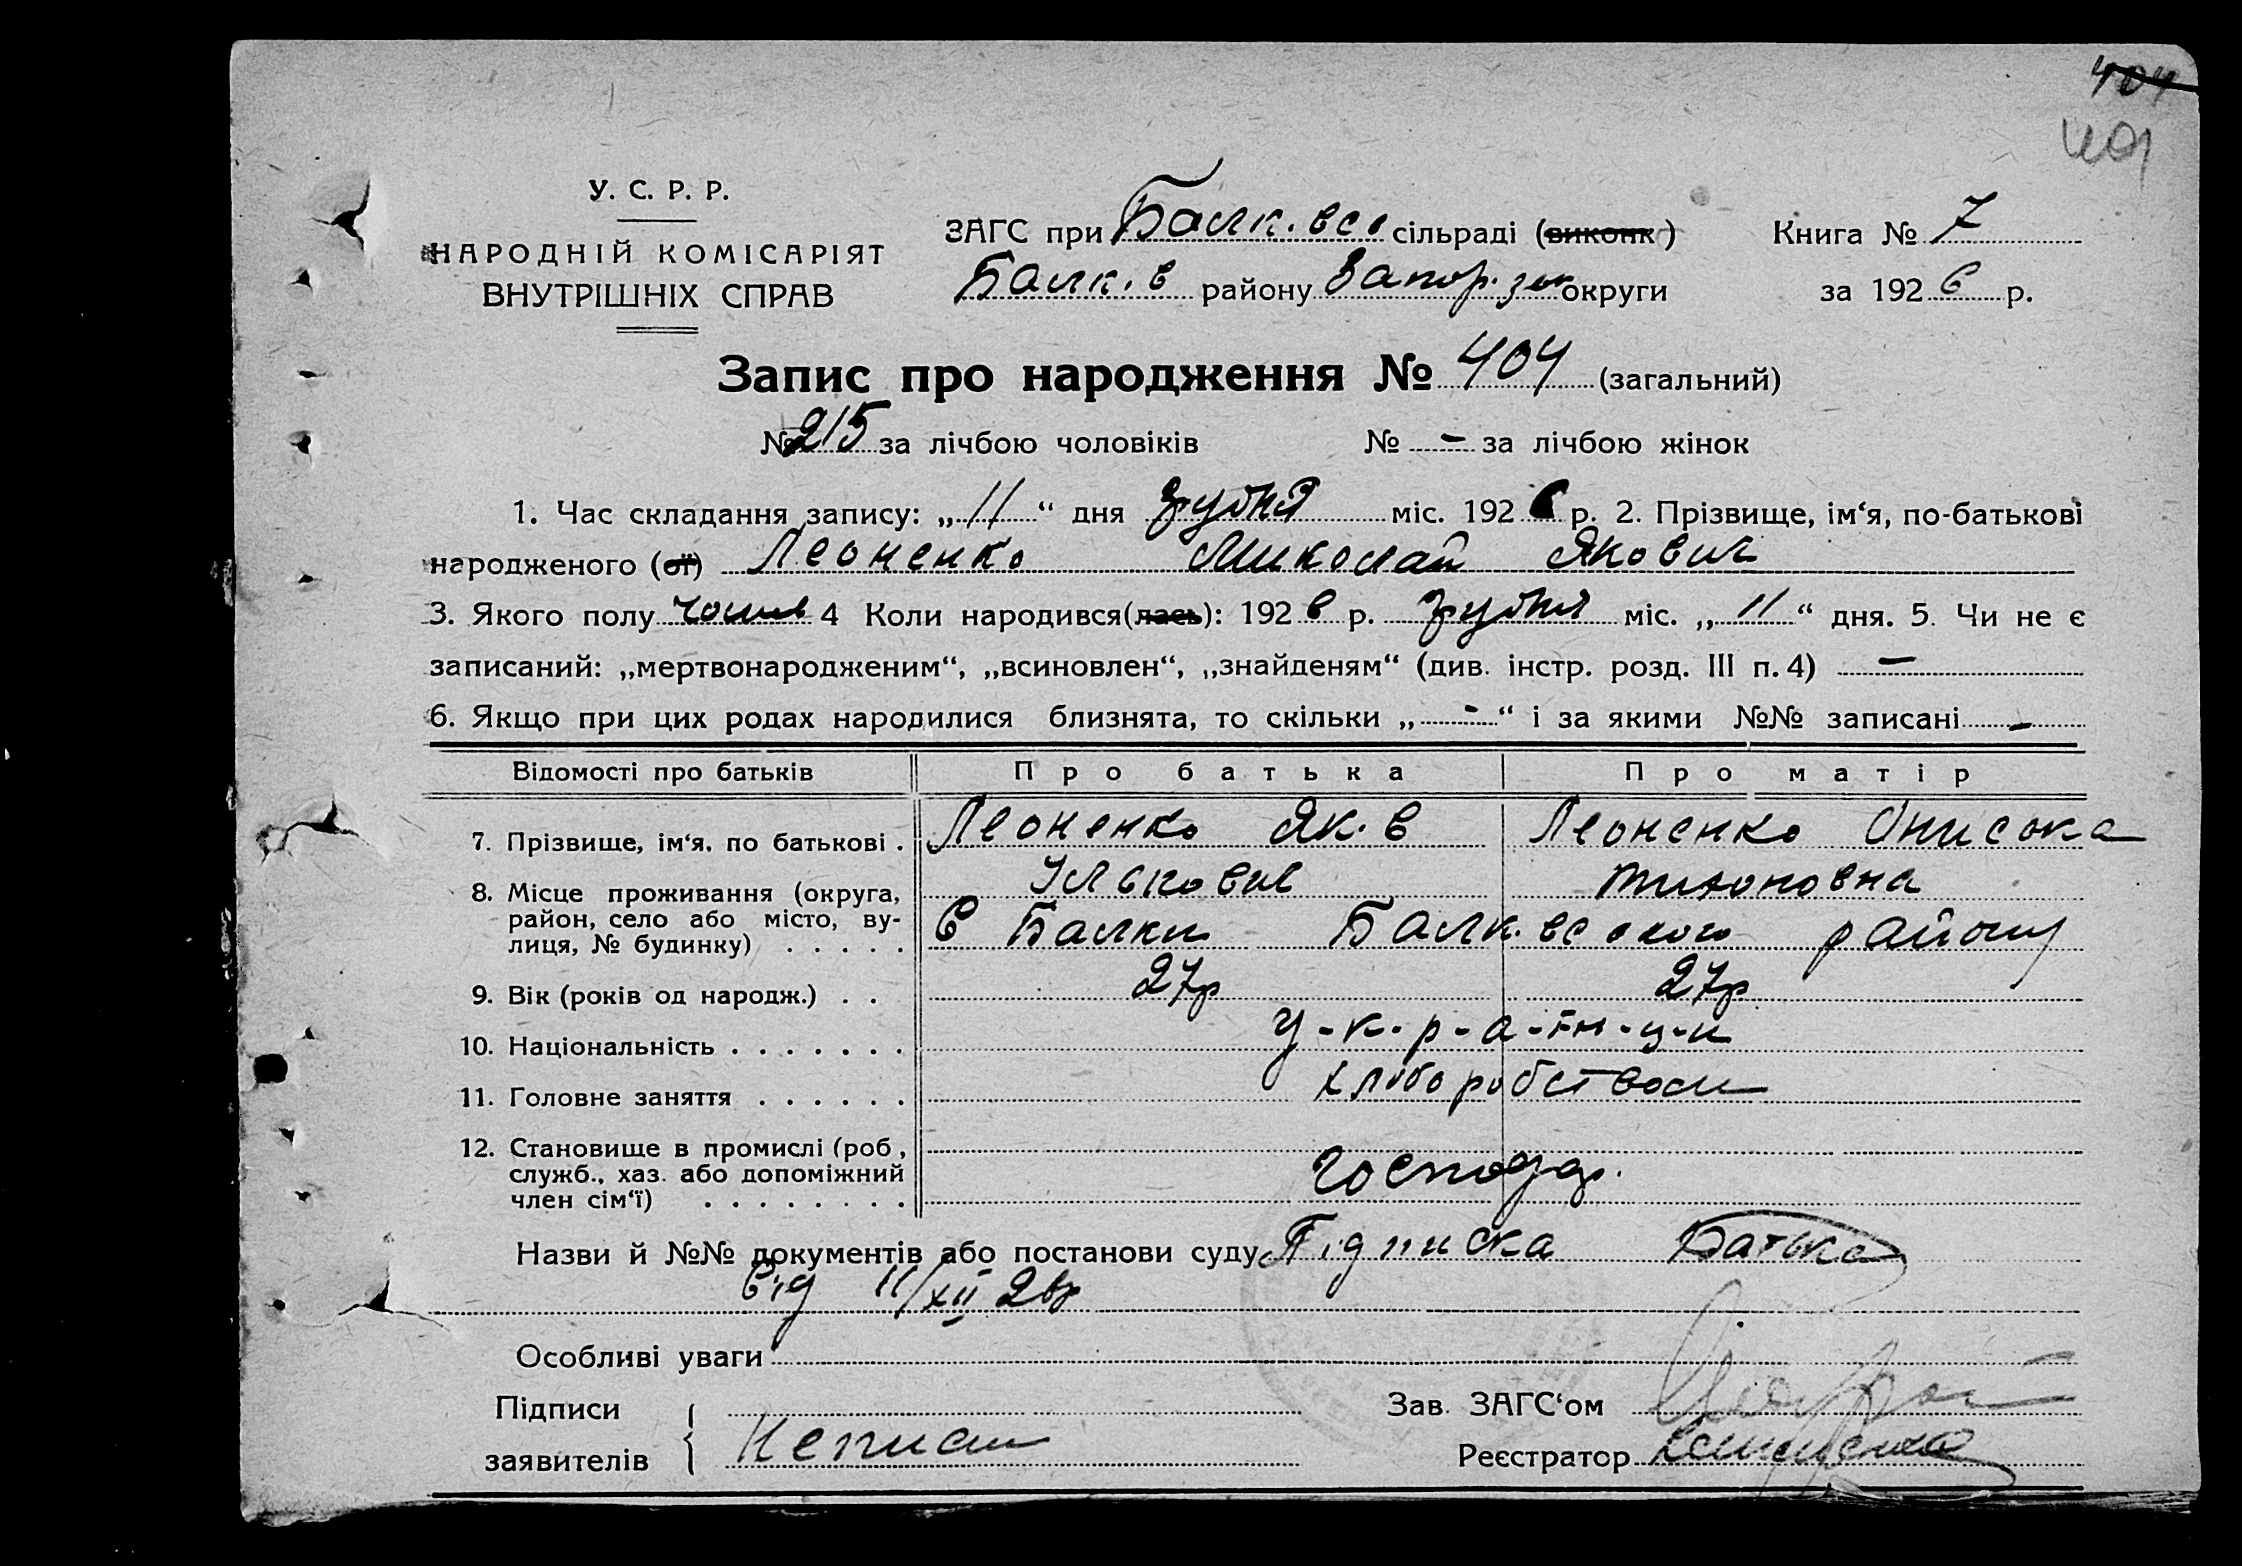 404
401
У. С. Р. Р.
НАРОДНІЙ КОМІСАРІЯТ
ВНУТРІШНІХ СПРАВ
ЗАГС при Балківс сільраді (виконк)
Балків району Запоріз округи
Книга № 7
за 1926 р.
Запис про народження № 404 (загальний)
№ 215 за лічбою чоловіків № - за лічбою жінок
1. Час складання запису: „11“ дня грудня міс. 1926 р. 2. Прізвище, ім‘я, по-батькові
народженого (ої) Леоненко Миколай Якович
3. Якого полу чолов 4 Коли народився(лась): 1926 р. грудня міс. „11“ дня. 5. Чи не є
записаний: „мертвонародженим“, „всиновлен“, „знайденям“ (див. інстр. розд. III п. 4) —
6. Якщо при цих родах народилися близнята, то скільки „-“ і за якими №№ записані -
Відомості про батьків Про батька Про матір
7. Прізвище, ім‘я, по батькові . Леоненко Яків Леоненко Онисока
Ількович Тихоновна
8. Місце проживання (округа,
район, село або місто, ву-
лиця, № будинку) . . . . . С Балки Балківського району
9. Вік (років од народж.) . . 27р 27р
10. Національність . . . . . . . у-к-р-а-їн-ц-и
11. Головне заняття . . . . . . хліборобством
12. Становище в промислі (роб,
служб., хаз. або допоміжний
член сім‘ї) . . . . . . . . господар.
Назви й №№ документів або постанови суду Підписка Батька
від 11/XII 26р
Особливі уваги
Підписи
заявителів Неписм
Зав. ЗАГС‘ом
Реєстратор